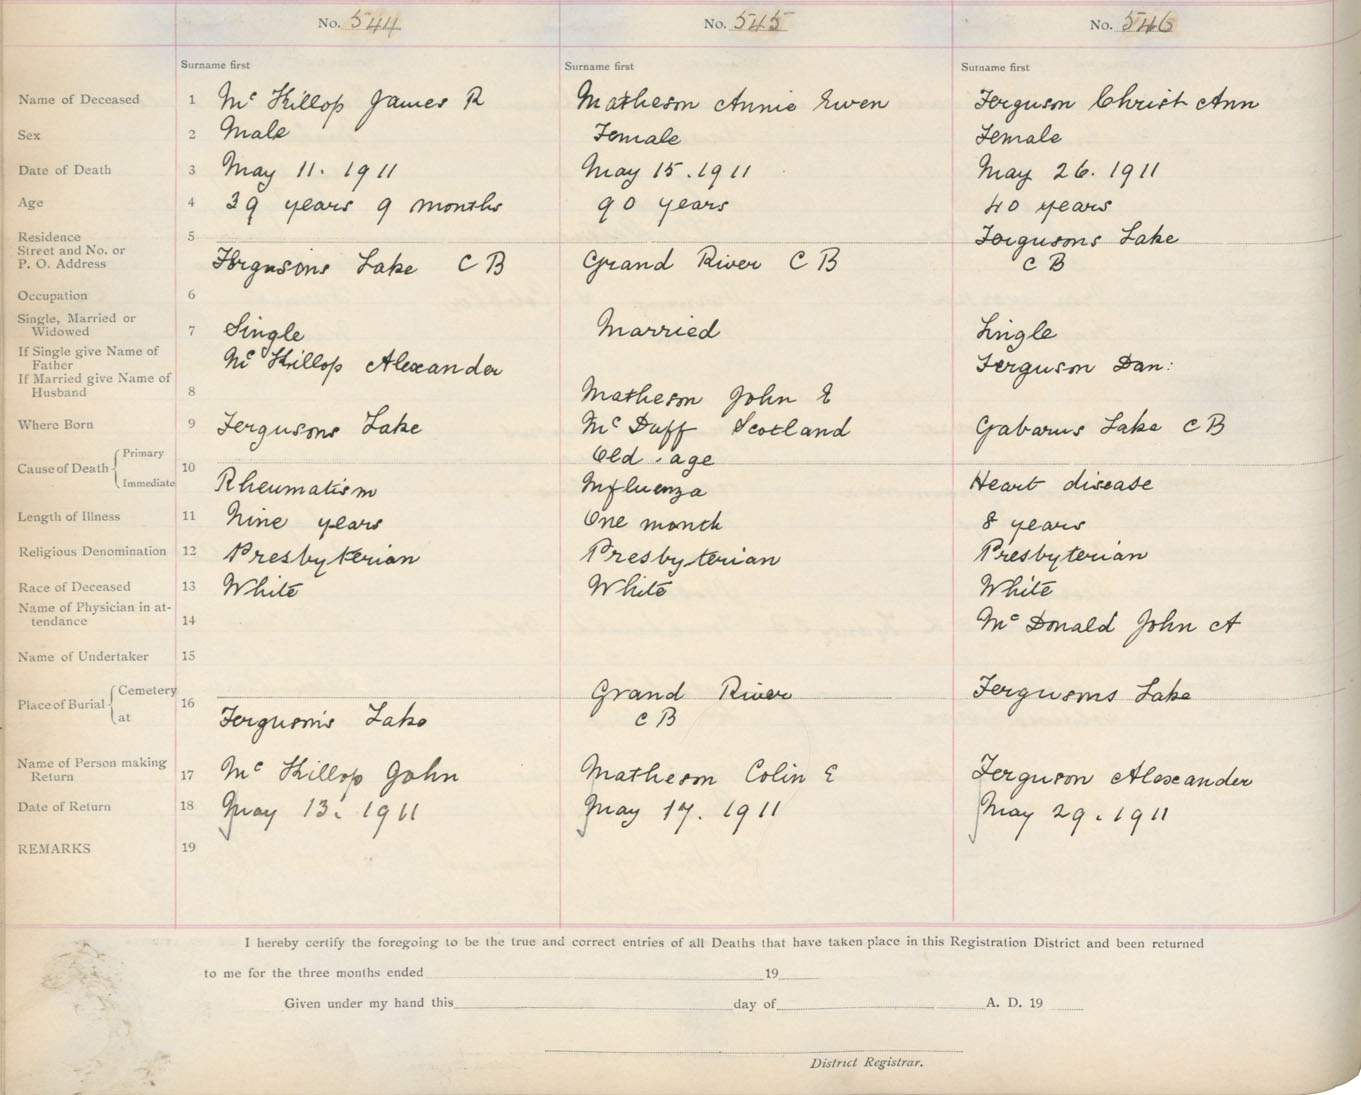 No. 544 No. 545 No. 546
Surname first Surname first Surname first
Name of Deceased 1 Mc Killop James R Matheson Annie Ewen Ferguson Christ Ann
Sex 2 Male Female Female
Date of Death 3 May 11. 1911 May 15. 1911 May 26. 1911
Age 4 39 years 9 months 90 years 40 years
Residence 5 Fergusons Lake
Street and No. or
P. O. Address Fergusons Lake C B Grand River C B C B
Occupation 6
Single, Married or
Widowed 7 Single Married Single
If Single give Name of
Father Mc Killop Alexander Ferguson Dan:
If Married give Name of
Husband 8 Matheson John E
Where Born 9 Fergusons Lake Mc Duff Scotland Gabarus Lake C B
Cause of Death Primary 10 Old age
Immediate Rheumatism Influenza Heart disease
Length of Illness 11 Nine years One month 8 years
Religious Denomination 12 Presbyterian Presbyterian Presbyterian
Race of Deceased 13 White White White
Name of Physician in at-
tendance 14 Mc Donald John A
Name of Undertaker 15
Place of Burial Cemetery 16 Grand River Fergusons Lake
at Ferguson's Lake C B
Name of Person making
Return 17 Mc Killop John Matheson Colin E Ferguson Alexander
Date of Return 18 May 13. 1911 May 17. 1911 May 29. 1911
REMARKS 19
I hereby certify the foregoing to be the true and correct entries of all Deaths that have taken place in this Registration District and been returned
to me for the three months ended 19
Given under my hand this day of A. D. 19
District Registrar.